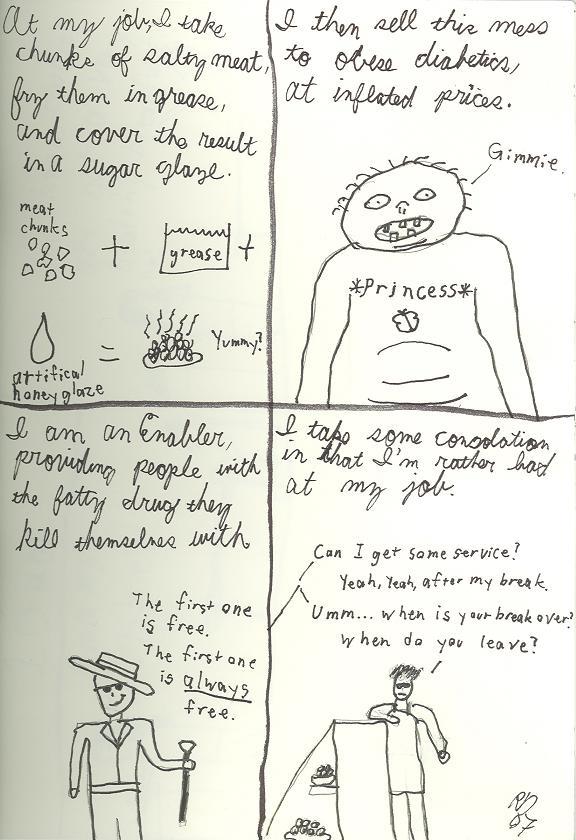 At my job, I take
chunks of salty meat,
fry them in grease,
and cover the result
in a sugar glaze.
meat
chunks
+
grease
+
artifical
honey glaze
=
Yummy?
I then sell this mess
to obese diabetics,
at inflated prices.
Gimmie.
*Princess*
I am an Enabler,
providing people with
the fatty drug they
kill themselves with
The first one
is free.
The first one
is always
free.
I take some consolation
in that I'm rather bad
at my job.
Can I get some service?
Yeah, Yeah, after my break.
Umm... when is your break over?
When do you leave?
07